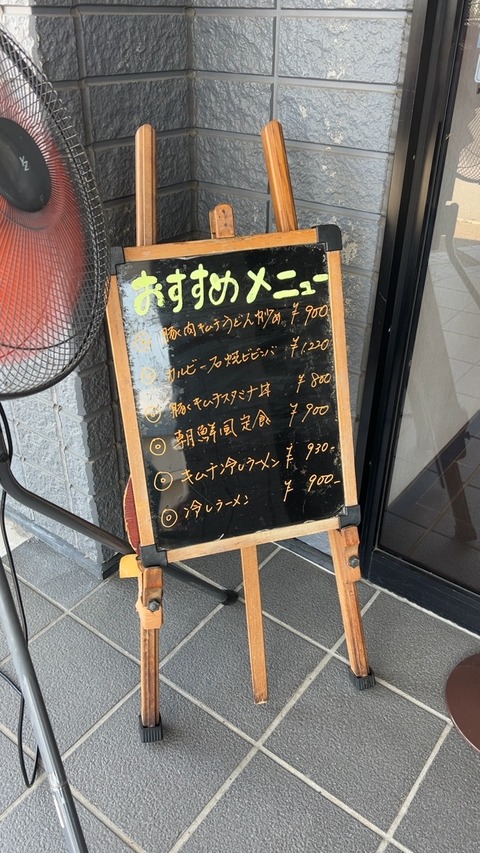 おすすめメニュー
◎ 豚肉キムチうどん炒め ¥900
◎ カルビー石焼ビビンバ ¥1,220
◎ 豚キムチスタミナ丼 ¥800
◎ 朝鮮風定食 ¥900
◎ キムチ冷しラーメン ¥930-
◎ 冷しラーメン ¥900-